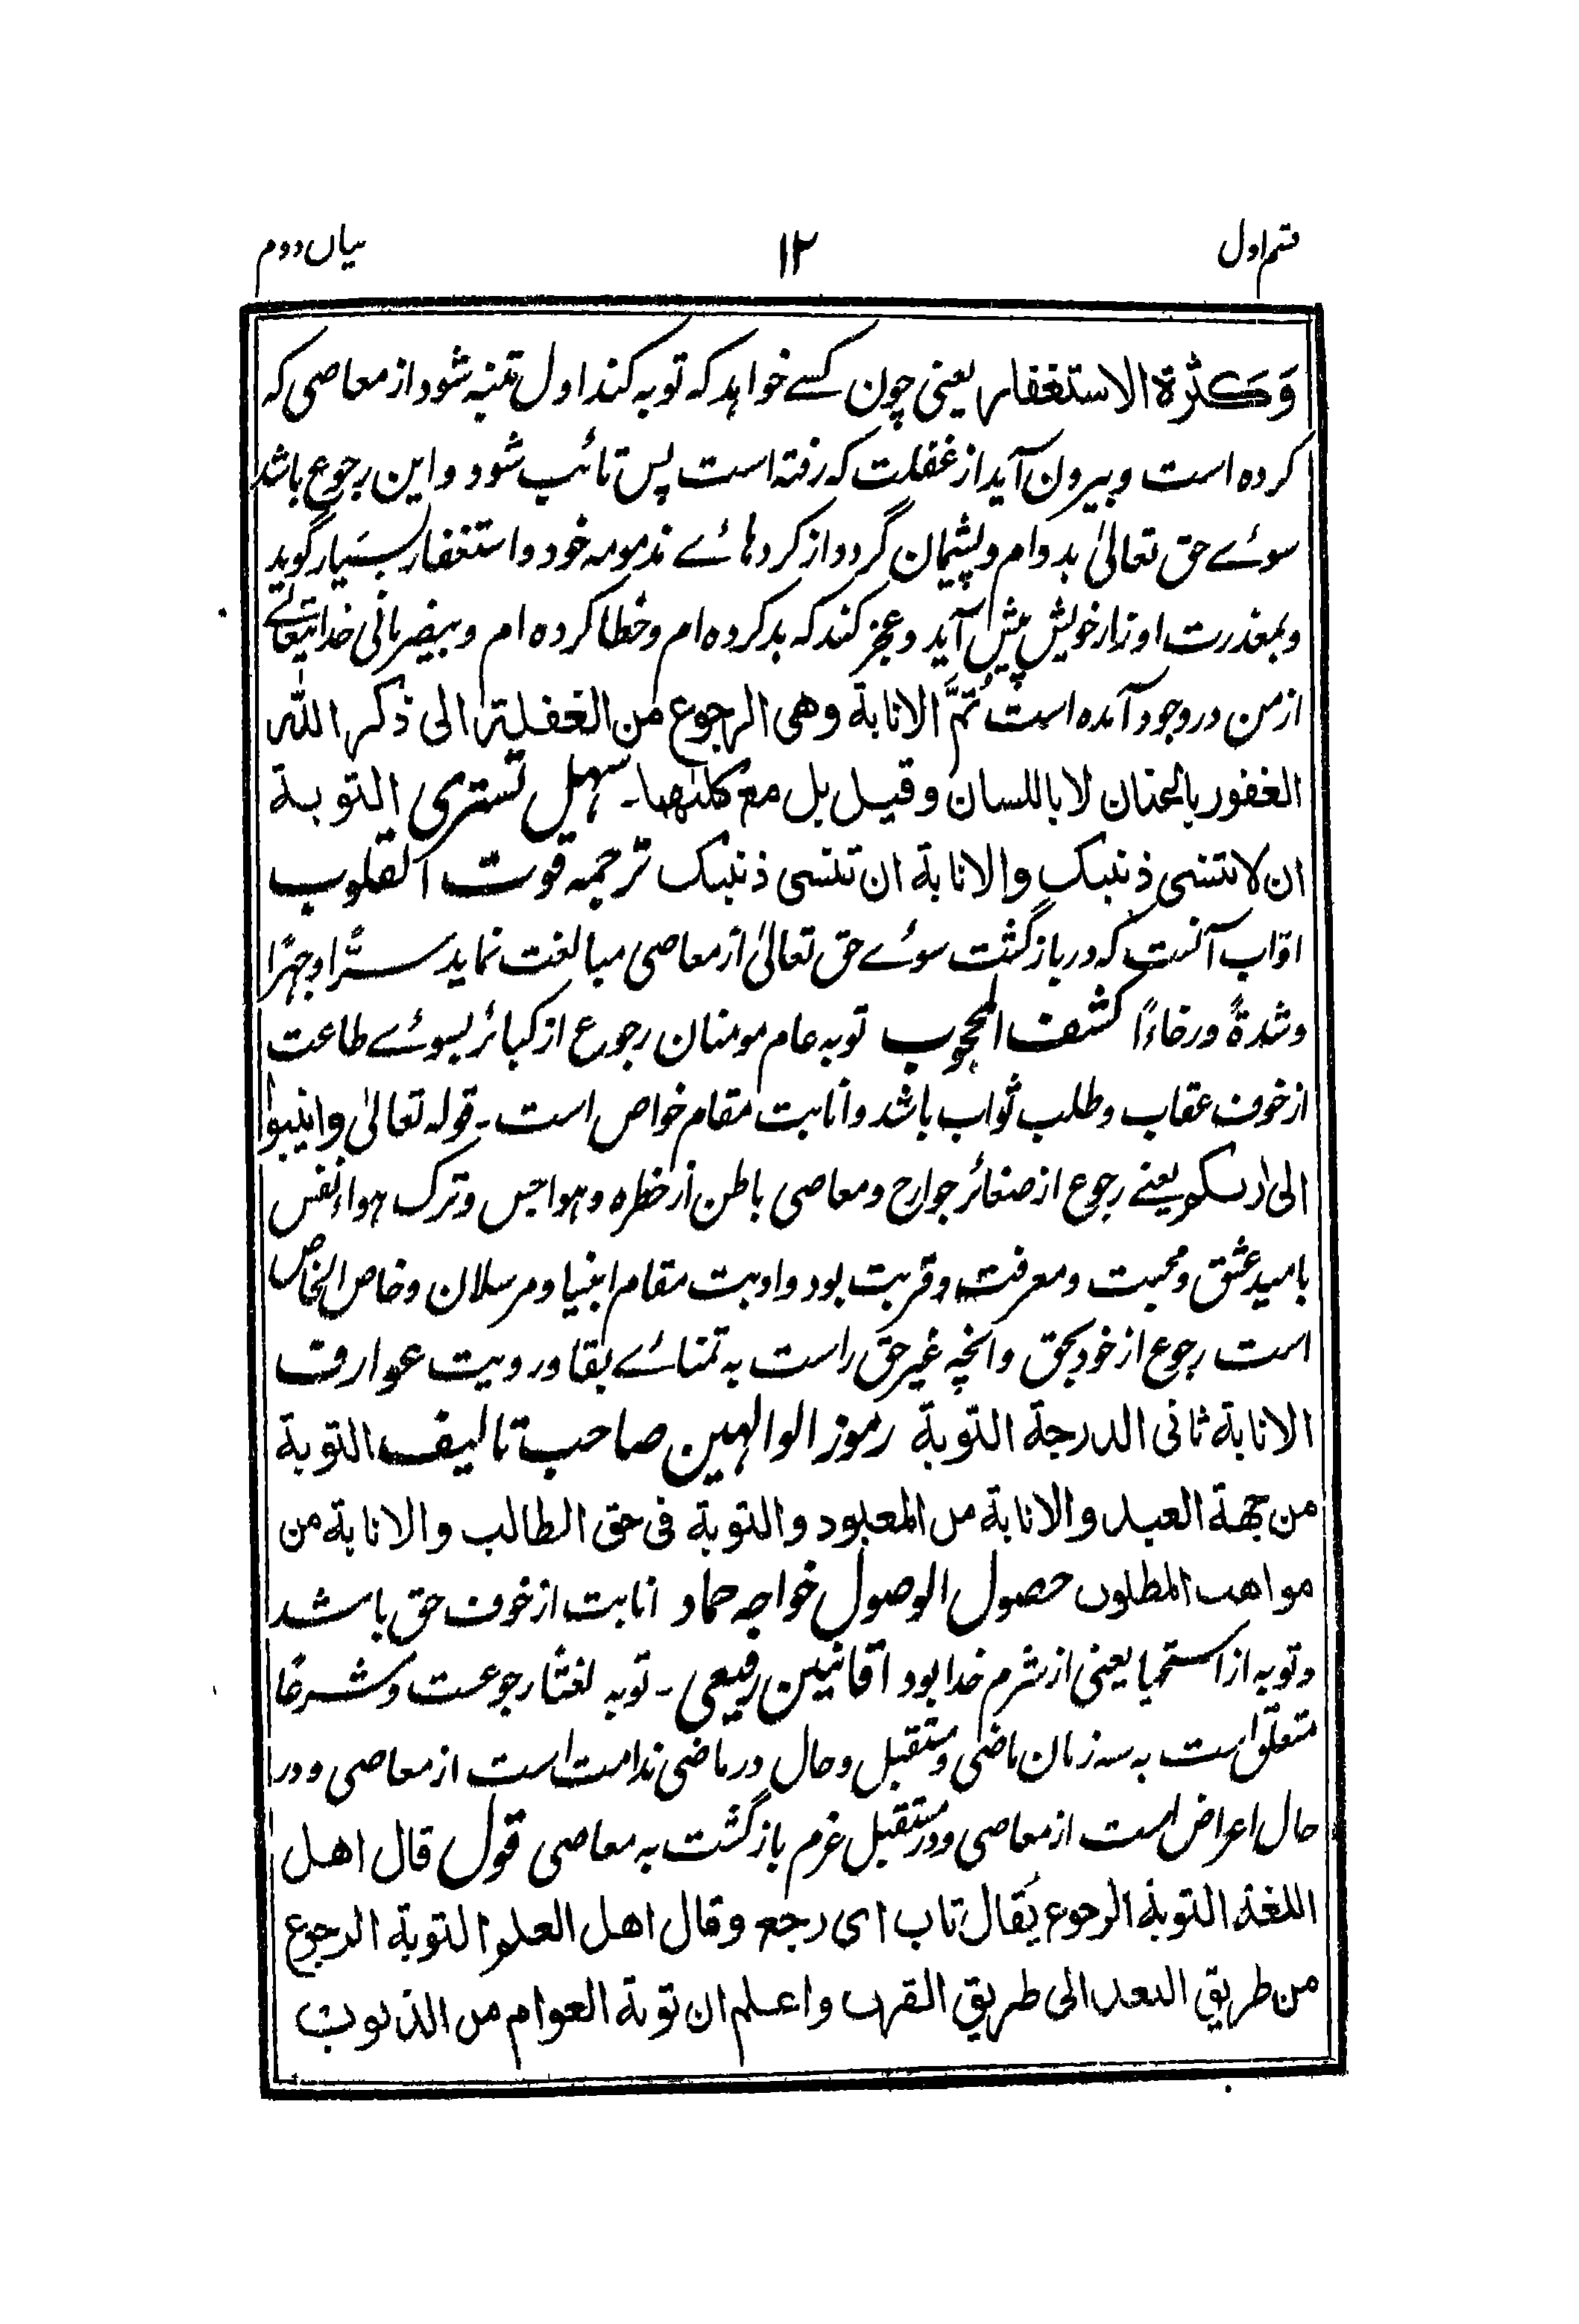 قسم اول
۱۲
بیان دوم
وَكثرة الاستغفار یعنی چون کسے خواہد کہ توبہ کند اول متنبہ شود از معاصی کہ
کردہ است و بیرون آید از غفلت کہ رفتہ است پس تائب شود و این رجوع باشد
سوئے حق تعالیٰ بدوام و پشیمان گردد از کردہائے مذمومہ خود و استغفار بسیار گوید
و بمعذرت اوزار خویش پیش آید و عجز کند کہ بد کردہ ام و خطا کردہ ام و بیفرمانی خدایتعالے
از من در وجود آمدہ است ثُمَّ الانابة وهى الرجوع من الغفلة الى ذكر الله
الغفور بالجنان لا باللسان وقيل بل مع كلتهما۔ سہیل تستری التوبة
ان لا تنسى ذنبك والانابة ان تنسى ذنبك ترجمہ قوت القلوب
اوّاب آنست کہ در بازگشت سوئے حق تعالیٰ از معاصی مبالغت نماید سرًّا وجہرًا
وشدةً ورخاءً کشف المحجوب توبہ عام مومنان رجوع از کبائر بسوئے طاعت
از خوف عقاب و طلب ثواب باشد وانابت مقام خواص است۔ قولہ تعالیٰ وانيبوا
الى ربكم یعنے رجوع از صغائر جوارح و معاصی باطن از خطرہ و ہواجس و ترک ہواء نفس
بامید عشق و محبت و معرفت و قربت بود و اوبت مقام انبیا و مرسلان و خاص الخاص
است رجوع از خود بحق وانچہ غیر حق راست بہ تمنائے بقا و رویت عوارف
الانابة ثانى الدرجة التوبة رموز الوالہین صاحب تالیف التوبة
من جهة العبد والانابة من المعبود والتوبة فى حق الطالب والانابة من
مواهب المطلوب حصول الوصول خواجہ حماد انابت از خوف حق باشد
و توبہ از استحیا یعنی از شرم خدا بود افانین رفیعی۔ توبہ لغتًا رجوعست و شرعًا
متعلق است بہ سہ زمان ماضی و مستقبل و حال در ماضی ندامت است از معاصی و در
حال اعراض است از معاصی و در مستقبل عزم بازگشت بہ معاصی قول قال اهل
اللغة التوبة الرجوع يُقال تاب اى رجع وقال اهل العلم التوبة الرجوع
من طريق البعد الى طريق القرب واعلم ان توبة العوام من الذنوب